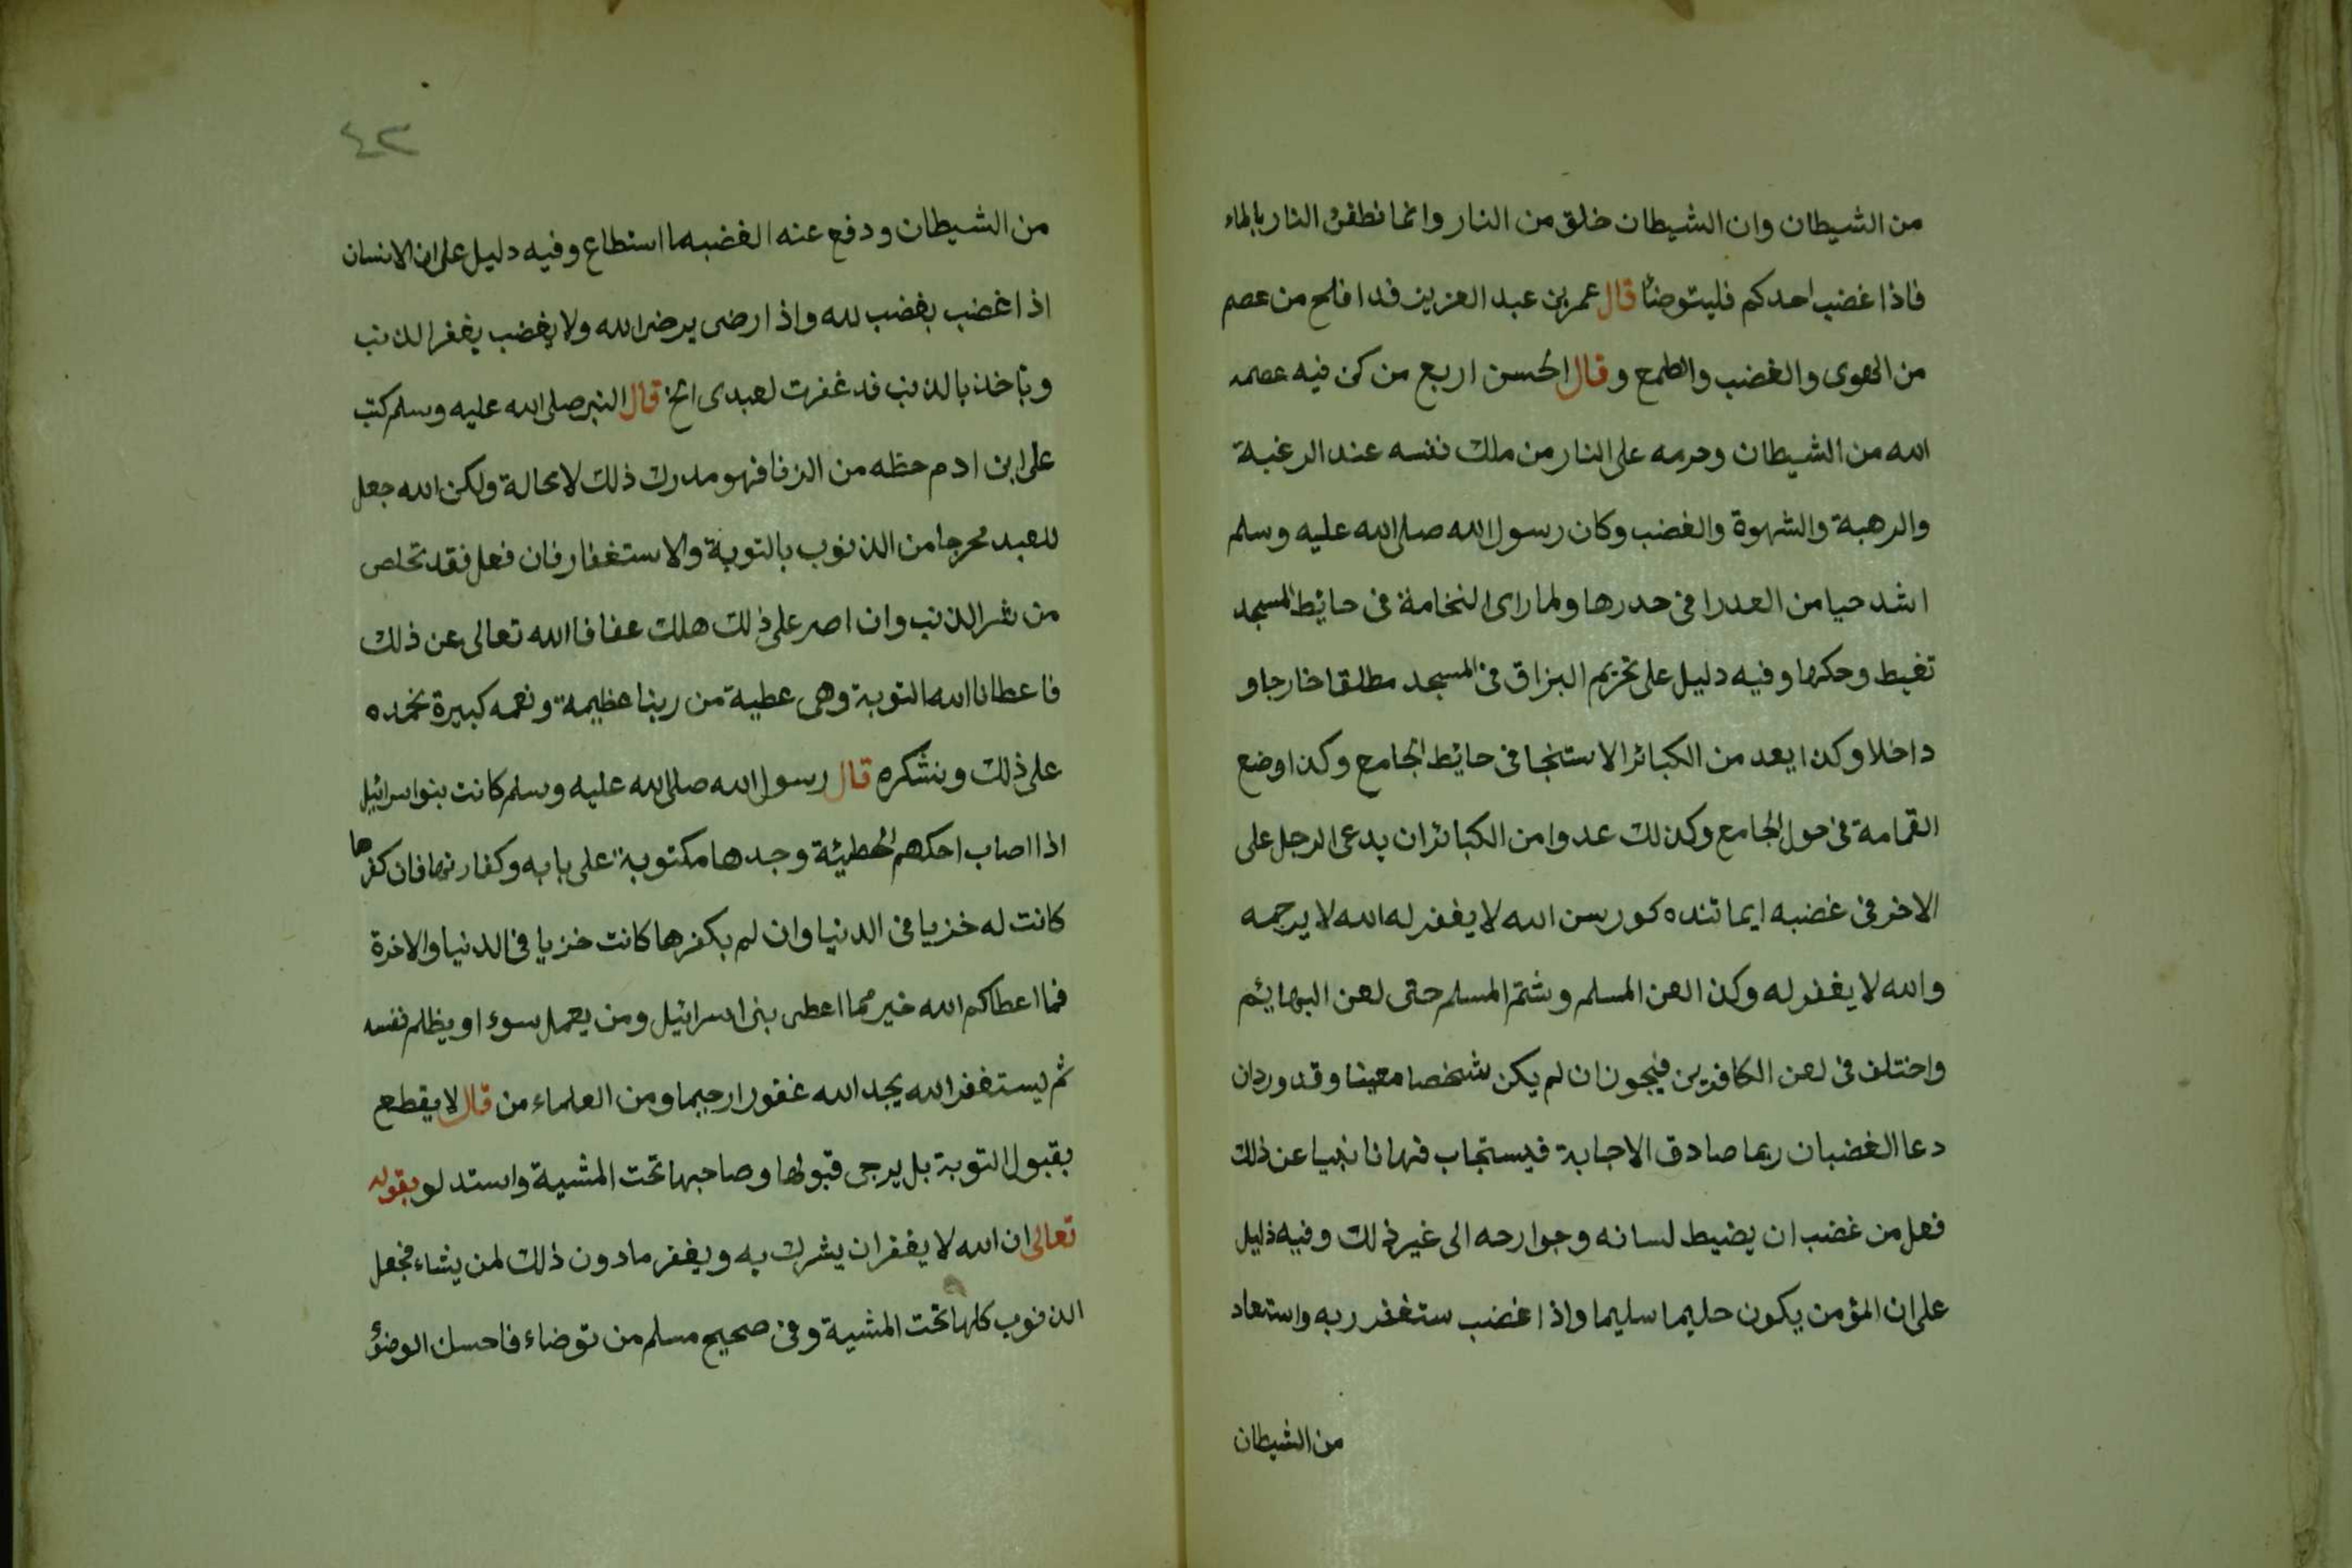 من الشيطان وان الشيطان خلق من النار وانما نطفئ النار بالماء
فاذا غضب احدكم فليتوضأ قال عمر بن عبد العزيز قد افلح من عصم
من الهوى والغضب والطمع وقال الحسن اربع من كن فيه عصمه
الله من الشيطان وحرمه على النار من ملك نفسه عند الرغبة
والرهبة والشهوة والغضب وكان رسول الله صلى الله عليه وسلم
اشد حيا من العدرا فى حدرها ولما راى النخامة فى حايط المسجد
تغيط وحكها وفيه دليل على تحريم البزاق فى المسجد مطلقا خارجا و
داخلا وكذا يعد من الكبائر الاستنجا فى حايط الجامع وكذا وضع
القمامة فى حول الجامع وكذلك عدوا من الكبائر ان يدعى الرجل على
الاخر فى غضبه الله لا يغفر له الله لا يرحمه
والله لا يغفر له وكذا لعن المسلم وشتم المسلم حتى لعن البهايم
واختلف فى لعن الكافرين فيجوز ان لم يكن شخصا معينا وقد ورد ان
دعا الغضبان ربما صادق الاجابة فيستجاب فنهانا نبينا عن ذلك
فعل من غضب ان يضيط لسانه وجوارحه الى غير ذلك وفيه دليل
على ان المؤمن يكون حليما سليما واذا غضب ستغفر ربه واستعاد
من الشيطان
٤٢
من الشيطان ودفع عنه الغضبه ما استطاع وفيه دليل على ان الانسان
اذا غضب بغضب لله واذا رضى يرضى الله ولا يغضب يغفر الذنب
وياخذ بالذنب قد غفرت لعبدى الخ قال النبى صلى الله عليه وسلم كتب
على ابن ادم حظه من الزنا فهو مدرك ذلك لا محالة ولكن الله جعل
للعبد مخرجا من الذنوب بالتوبة والاستغفار فان فعل فقد تخلص
من شر الذنب وان اصر على ذلك هلك عفانا الله تعالى عن ذلك
فاعطانا الله التوبة وهى عطية من ربنا عظيمة ونعمه كبيرة نحمده
على ذلك ونشكره قال رسول الله صلى الله عليه وسلم كانت بنوا اسرائيل
اذا اصاب احكهم الخطيئة وجدها مكتوبة على بابه وكفارتها فان كفرها
كانت له خزيا فى الدنيا وان لم يكفرها كانت خزيا فى الدنيا والاخرة
فما اعطاكم الله خير مما اعطى بنى اسرائيل ومن يعمل سوء او يظلم نفسه
ثم ليستغفر الله يجد الله غفورا رحيما ومن العلماء من قال لا يقطع
بقبول التوبة بل يرجى قبولها وصاحبها تحت المشية واستدلو بقوله
تعالى ان الله لا يغفر ان يشرك به ويغفر ما دون ذلك لمن يشاء فجعل
الذنوب كلها تحت المشية وفى صحيح مسلم من توضاء فاحسن الوضؤ